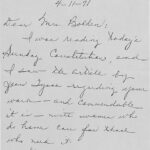 4-11-91
Dear Mrs Bolden:
I was reading today's
Sunday Constitution, and
I saw the article by
regarding your
work - and commendable
it is - with women who
do home care for those
who need it.